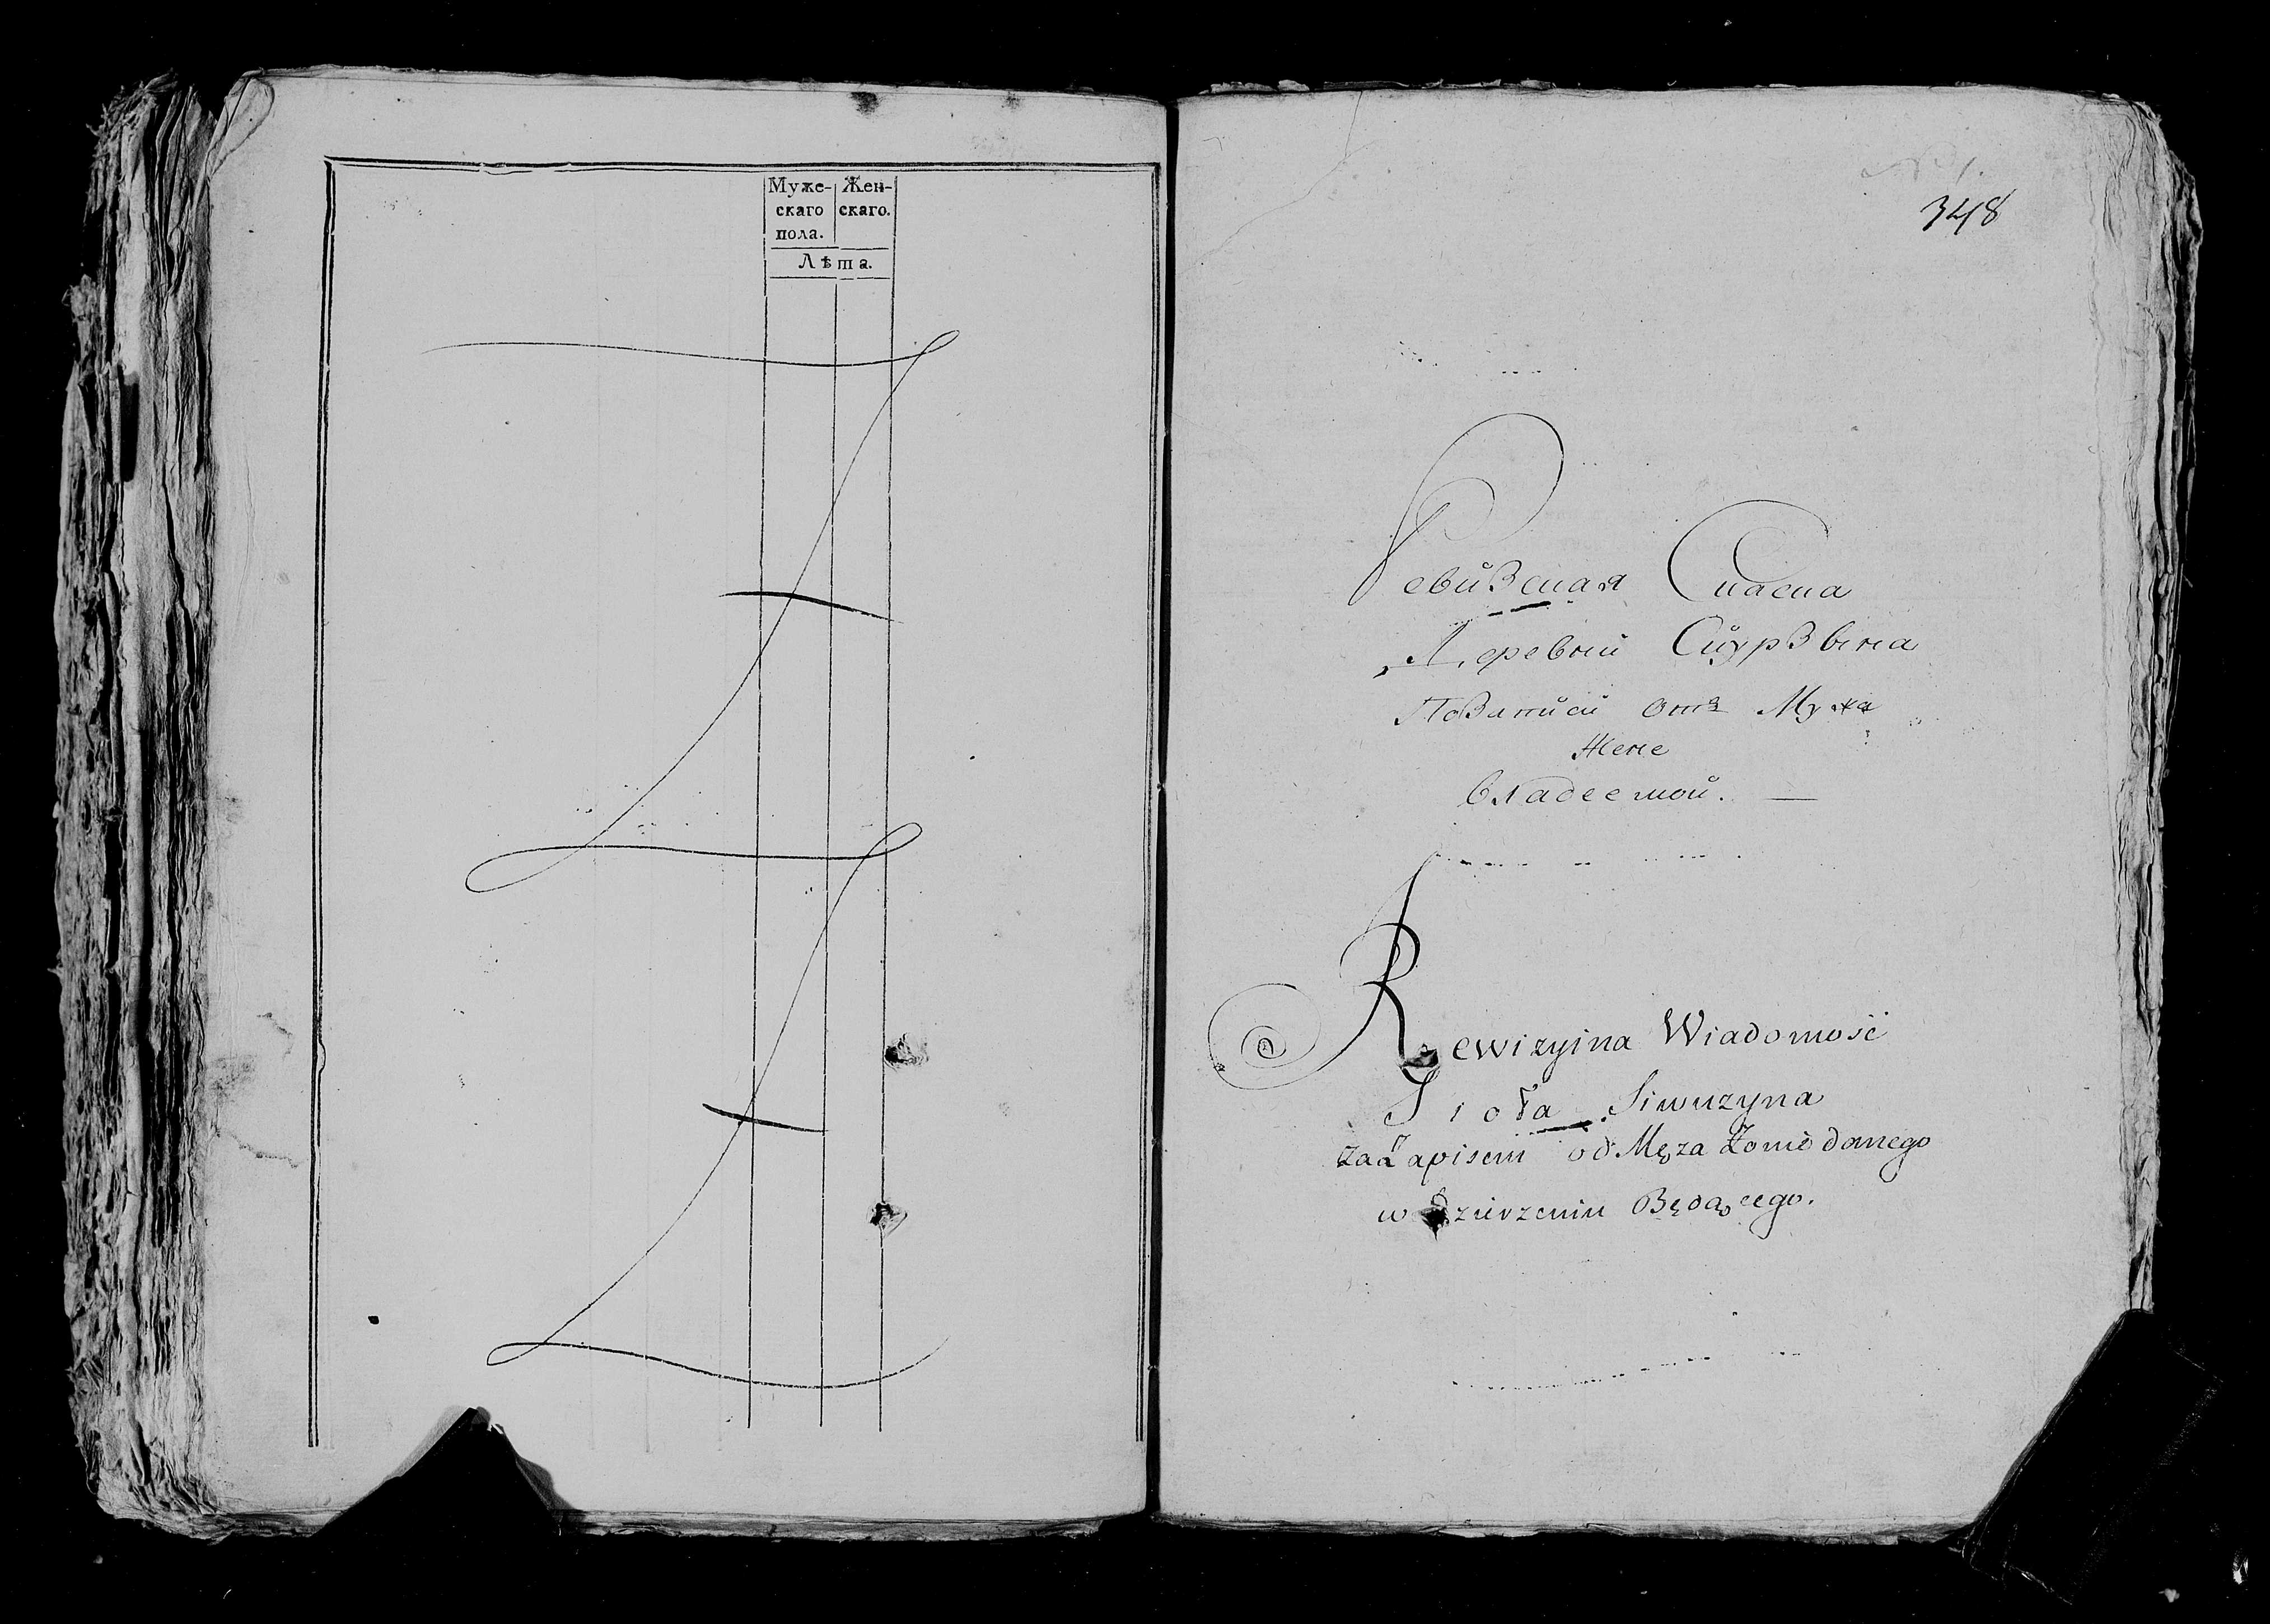 Муже- Жен-
скаго скаго.
пола.
Лѣта.
348
Ревизская Скаска
Деревни
По Записи отъ Мужа
Жене
владеемой. —
Rewizyina Wiadomość
Sioła Siwuzyna
za Zapisem od Męża Zonie danego
w dzierzeniu Będącego.